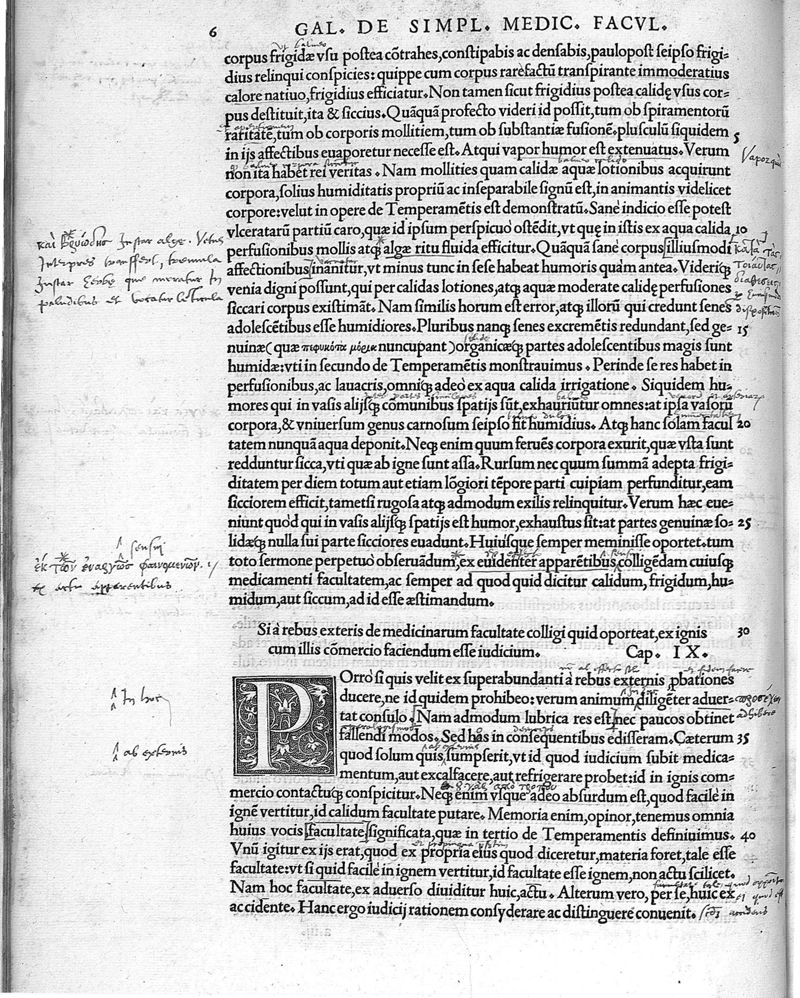 6 GAL. DE SIMPL. MEDIC. FACVL.
corpus frigidæ vsu postea cōtrahes, constipabis ac densabis, paulopost seipso frigi-
dius relinqui conspicies: quippe cum corpus rarefactū transpirante immoderatius
calore natiuo, frigidius efficiatur. Non tamen sicut frigidius postea calidę vsus cor-
pus destituit, ita & siccius. Quāquā profecto videri id possit, tum ob spiramentorū
raritatē, tum ob corporis mollitiem, tum ob substantiæ fusionē. plusculū siquidem 5
in ijs affectibus euaporetur necesse est. Atqui vapor humor est extenuatus. Verum
non ita habet rei veritas. Nam mollities quam calidæ aquæ lotionibus acquirunt
corpora, solius humiditatis propriū ac inseparabile signū est, in animantis videlicet
corpore: velut in opere de Temperamētis est demonstratū. Sane indicio esse potest
vlceratarū partiū caro, quæ id ipsum perspicuo ostēdit, vt quę in istis ex aqua calida 10
perfusionibus mollis atq; algæ ritu fluida efficitur. Quāquā sane corpus illiusmodi
affectionibus inanitur, vt minus tunc in sese habeat humoris quàm antea. Videriq;
venia digni possunt, qui per calidas lotiones, atq; aquæ moderate calidę perfusiones
siccari corpus existimāt. Nam similis horum est error, atq; illorū qui credunt senes
adolescētibus esse humidiores. Pluribus nanq; senes excremētis redundant, sed ge- 15
nuinæ (quæ πεφυκότα μόρια nuncupant) organicæq; partes adolescentibus magis sunt
humidæ: vti in secundo de Temperamētis monstrauimus. Perinde se res habet in
perfusionibus, ac lauacris, omniq; adeò ex aqua calida irrigatione. Siquidem hu-
mores qui in vasis alijsq; cōmunibus spatijs sūt, exhauriūtur omnes: at ipsa vasorū
corpora, & vniuersum genus carnosum seipso fit humidius. Atq; hanc solam facul 20
tatem nunquā aqua deponit. Neq; enim quum feruēs corpora exurit, quæ vsta sunt
redduntur sicca, vti quæ ab igne sunt assa. Rursum nec quum summā adepta frigi-
ditatem per diem totum aut etiam lōgiori tēpore parti cuipiam perfunditur, eam
sicciorem efficit, tametsi rugosa atq; admodum exilis relinquitur. Verum hæc eue-
niunt quòd qui in vasis alijsq; spatijs est humor, exhaustus sit: at partes genuinæ so- 25
lidæq; nulla sui parte sicciores euadunt. Huiusque semper meminisse oportet. tum
toto sermone perpetuò obseruādum, ex euidenter apparētibus colligēdam cuiusq;
medicamenti facultatem, ac semper ad quod quid dicitur calidum, frigidum, hu-
midum, aut siccum, ad id esse æstimandum.
Si à rebus exteris de medicinarum facultate colligi quid oporteat, ex ignis 30
cum illis cōmercio faciendum esse iudicium. Cap. IX.
POrrò si quis velit ex superabundanti à rebus externis ꝓbationes
ducere, ne id quidem prohibeo: verum animum diligēter aduer-
tat consulo. Nam admodum lubrica res est, nec paucos obtinet
fallendi modos. Sed hàs in consequentibus edisseram. Cæterum 35
quod solum quis sumpserit, vt id quod iudicium subit medica-
mentum, aut excalfacere, aut refrigerare probet: id in ignis com-
mercio contactuq; conspicitur. Neq; enim vsque adeo absurdum est, quod facile in
ignē vertitur, id calidum facultate putare. Memoria enim, opinor, tenemus omnia
huius vocis facultate significata, quæ in tertio de Temperamentis definiuimus. 40
Vnū igitur ex ijs erat, quod ex propria eius quod diceretur, materia foret, tale esse
facultate: vt si quid facile in ignem vertitur, id facultate esse ignem, non actu scilicet.
Nam hoc facultate, ex aduerso diuiditur huic, actu. Alterum vero, per se, huic ex
accidente. Hanc ergo iudicij rationem consyderare ac distinguere conuenit.
In hoc
ab externis